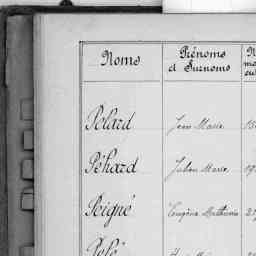 Noms Prénoms et Surnoms
Pelard Jean Marie 15
Péhard Julien Marie 19
Peigné Eugène Mathurin 21
Pelé